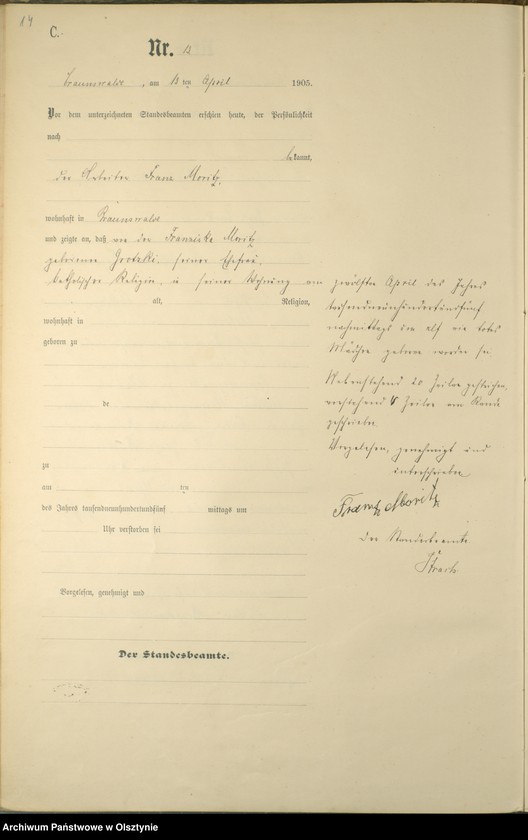 14
C.
Nr. 12
Braunswalde, am 13 ten April 1905.
Vor dem unterzeichneten Standesbeamten erschien heute, der Persönlichkeit
nach
bekannt,
der Arbeiter Franz Moritz,
wohnhaft in Braunswalde
und zeigte an, daß von der Franziska Moritz
geborenen seiner Ehefrau,
katholischer Religion, in seiner Wohnung am zwölften April des Jahres
tausendneunhundertundfünf
nachmittags um elf ein totes
Mädchen geboren worden sei.
Nebenstehend 20 Zeilen gestrichen,
vorstehend Zeilen am Rande
geschrieben.
Vorgelesen, genehmigt und
unterschrieben
Franz Moritz
Der Standesbeamte
alt, Religion,
wohnhaft in
geboren zu
de
zu
am ten
des Jahres tausendneunhundertundfünf mittags um
Uhr verstorben sei
Vorgelesen, genehmigt und
Der Standesbeamte.
Archiwum Państwowe w Olsztynie